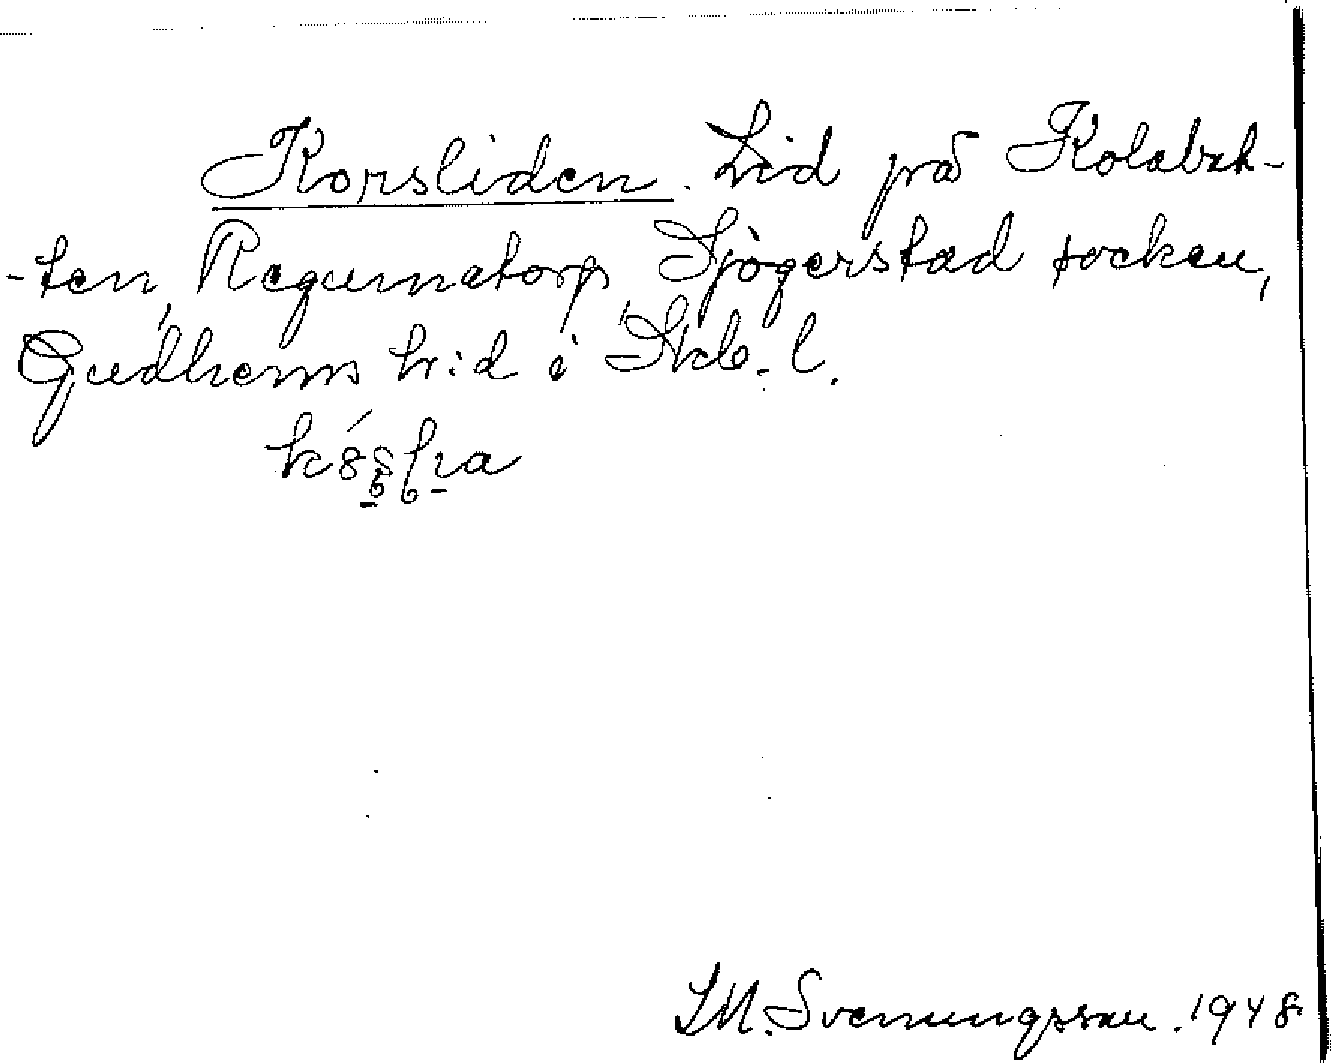 Korsliden. Lid på Kolabak-
-ten, Regumatorp, Sjögerstad socken,
Gudhems h:d i Skb. l.
SM. Svenungsson. 1948